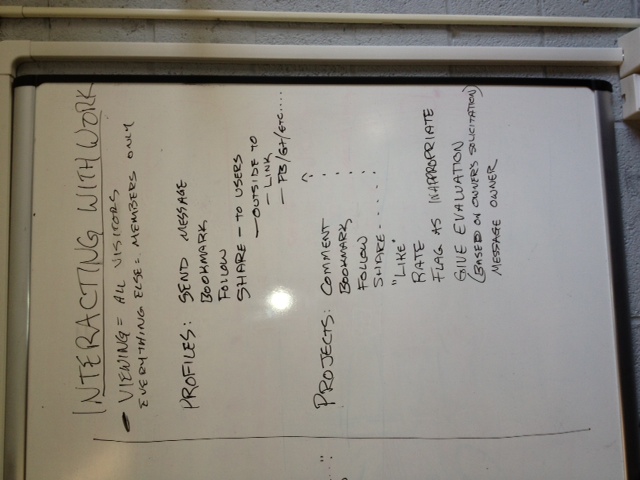 INTERACTING WITH WORK
- VIEWING = ALL VISITORS
EVERYTHING ELSE = MEMBERS ONLY
PROFILES: SEND MESSAGE
BOOKMARK
FOLLOW
SHARE - TO USERS
- OUTSIDE TO
- LINK
- FB/G+/ETC....
PROJECTS: COMMENT
BOOKMARK
FOLLOW
SHARE
"LIKE"
RATE
FLAG AS INAPPROPRIATE
GIVE EVALUATION
(BASED ON OWNER'S SOLICITATION)
MESSAGE OWNER